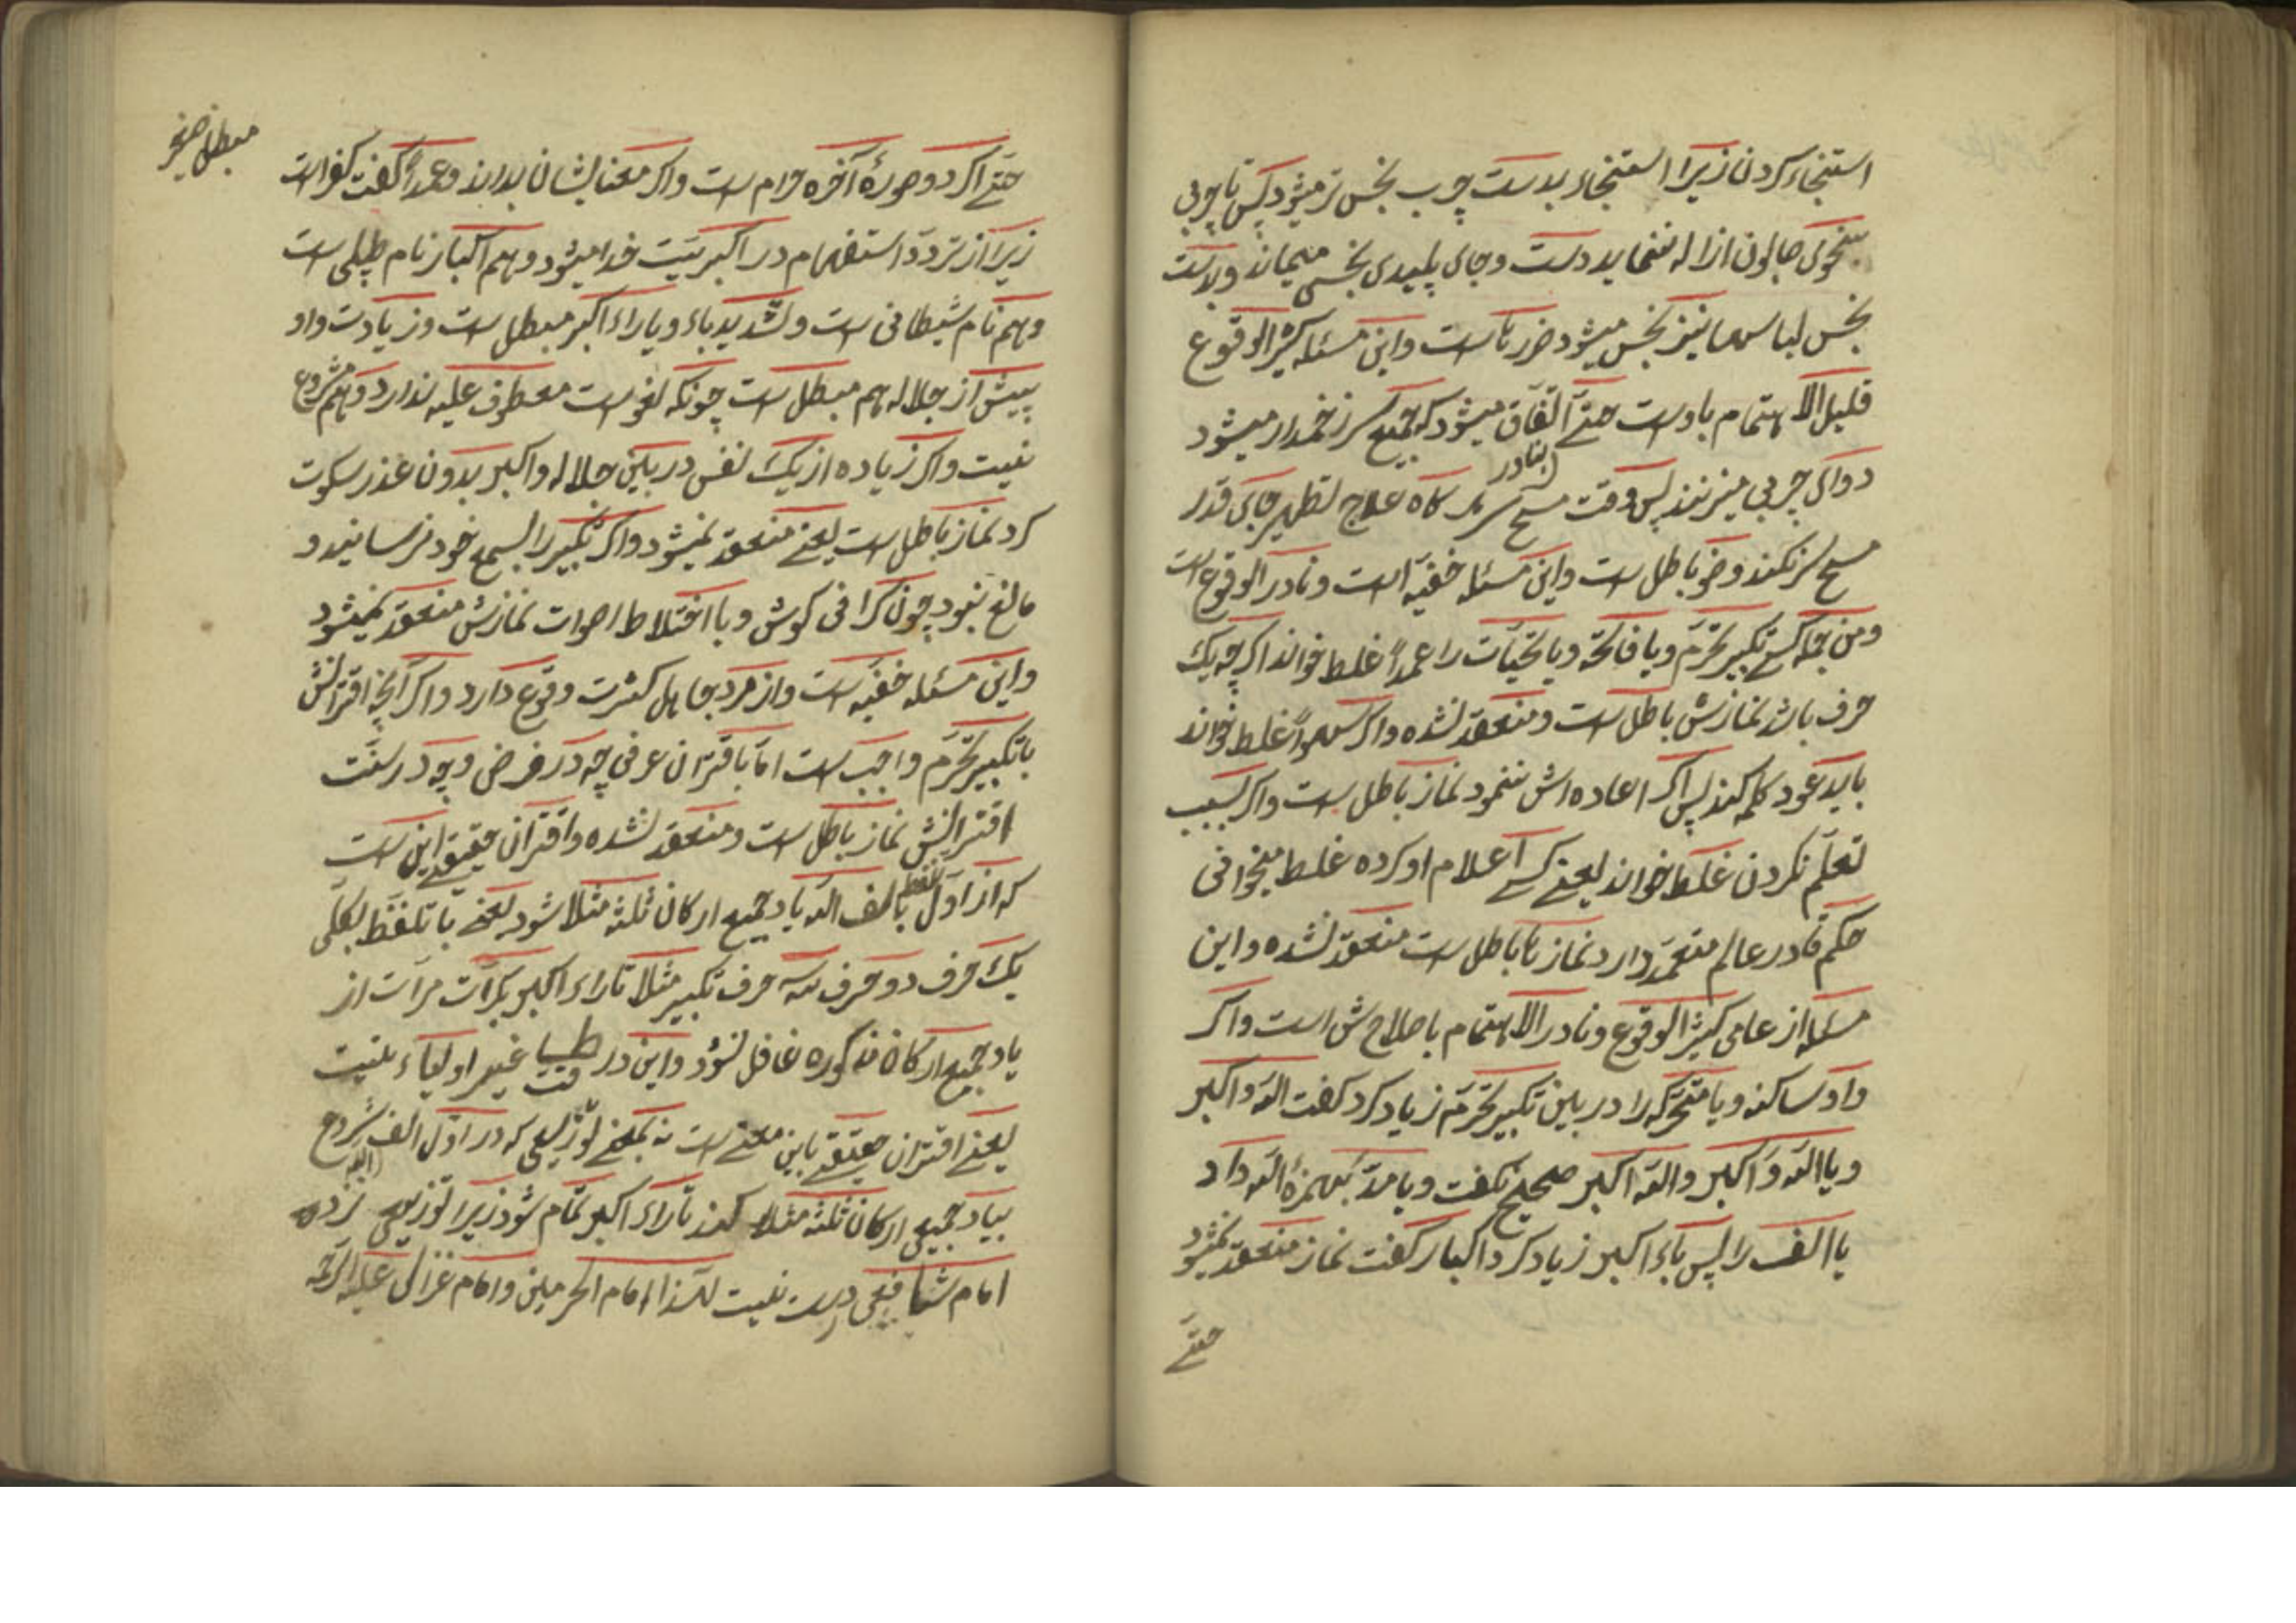 استنجاء کردن زیرا استنجاء بدست چرب نجس تر میشود پس تا چربی
بنحوی صابون ازاله ننماید دست و جای پلیدی نجس میماند و بدست
نجس لباسها نیز نجس میشود ضررناست و این مسئله کثیر الوقوع
قلیل الاهتمام باوست حتی اتفاق میشود که جمیع سر زخمدار میشود
دوای چربی میزنند پس وقت مسح سر گاه علاج تطهیر جای قدر
مسح سر نکند وضو باطل است و این مسئله خفیه است و نادر الوقوع است
ومن جمله کسی تکبیر تحرم و یا فاتحه و یا تحیات را عمداً غلط خواند اگرچه یک
حرف باشد نمازش باطل است و منعقد نشده و اگر سهواً غلط خواند
باید عود کلمه کند پس اگر اعاده اش ننمود نماز باطل است و اگر بسبب
تعلم نکردن غلط خواند یعنی کسی اعلام او کرده غلط میخوانی
حکم قادر عالم متعمد دارد نماز نا باطل است منعقد نشده و این
مسئله از عامی کثیر الوقوع و نادر الاهتمام باصلاحش است و اگر
واو ساکنه و یا متحرکه را در بین تکبیر تحرم زیاد کرد گفت الله واکبر
و یا الله وَاکبر و الله اکبر صحیح نگفت و یا مد بهمزهٔ الله داد
یا الف را پس باء اکبر زیاد کرد اکبار گفت نماز منعقد نمیشود
حتی
حتی اگر دو صورهٔ آخره حرام است و اگر معنایشان بداند و عمداً گفت کفر است
زیرا از تردد استفهام در اکبریت خدا میشود و هم اکبار نام طبلی است
و هم نام شیطانی است و تشدید باء و یا راء اکبر مبطل است و زیادت واو
پیش از جلاله هم مبطل است چونکه لغو است معطوف علیه ندارد و هم مشروع
نیست و اگر زیاده از یک نفس در بین جلاله و اکبر بدون عذر سکوت
کرد نماز باطل است یعنی منعقد نمیشود و اگر تکبیر را بسمع خود نرسانید و
مانع نبود چون گرانی گوش و یا اختلاط اصوات نمازش منعقد نمیشود
و این مسئله خفیه است و از مرد جاهل کثرت وقوع دارد و اگر آنچه اقترانش
با تکبیر تحرم واجب است اما باقتران عرفی چه در فرض و چه در سنت
اقترانش نماز باطل است و منعقد نشده و اقتران حقیقی این است
که از اول تلفظ بالف الله یاد جمیع ارکان ثلثه مثلا شود یعنی با تلفظ بکلی
یک حرف دو حرف سه حرف تکبیر مثلا تا راء اکبر بکرات مرات از
یاد جمیع ارکان مذکوره غافل نشود و این در طیاقت غیر اولیاء نیست
یعنی اقتران حقیقی باین معنی است نه بمعنی توزیعی که در اول الف الله شروع
بیاد جمیع ارکان ثلثه مثلا کند تا راء اکبر تمام شود زیرا توزیعی نزد
امام شافعی درست نیست لهذا امام الحرمین و امام غزالی علیه الرحمه